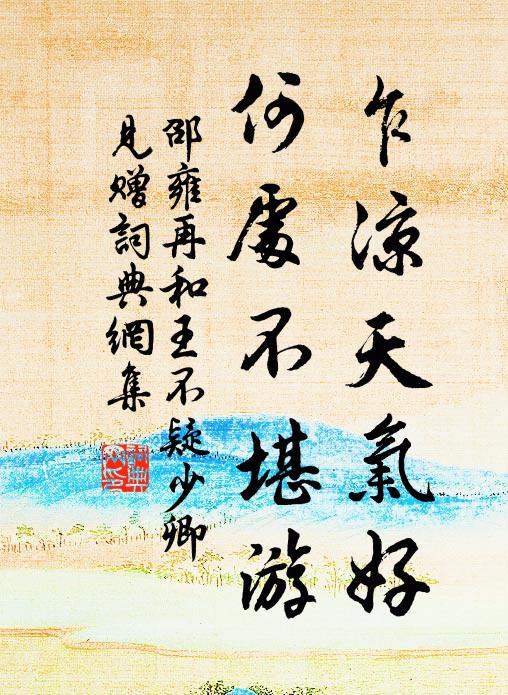 乍涼天氣好
何處不堪游
邵雍再和王不疑少卿
見贈詞典網集